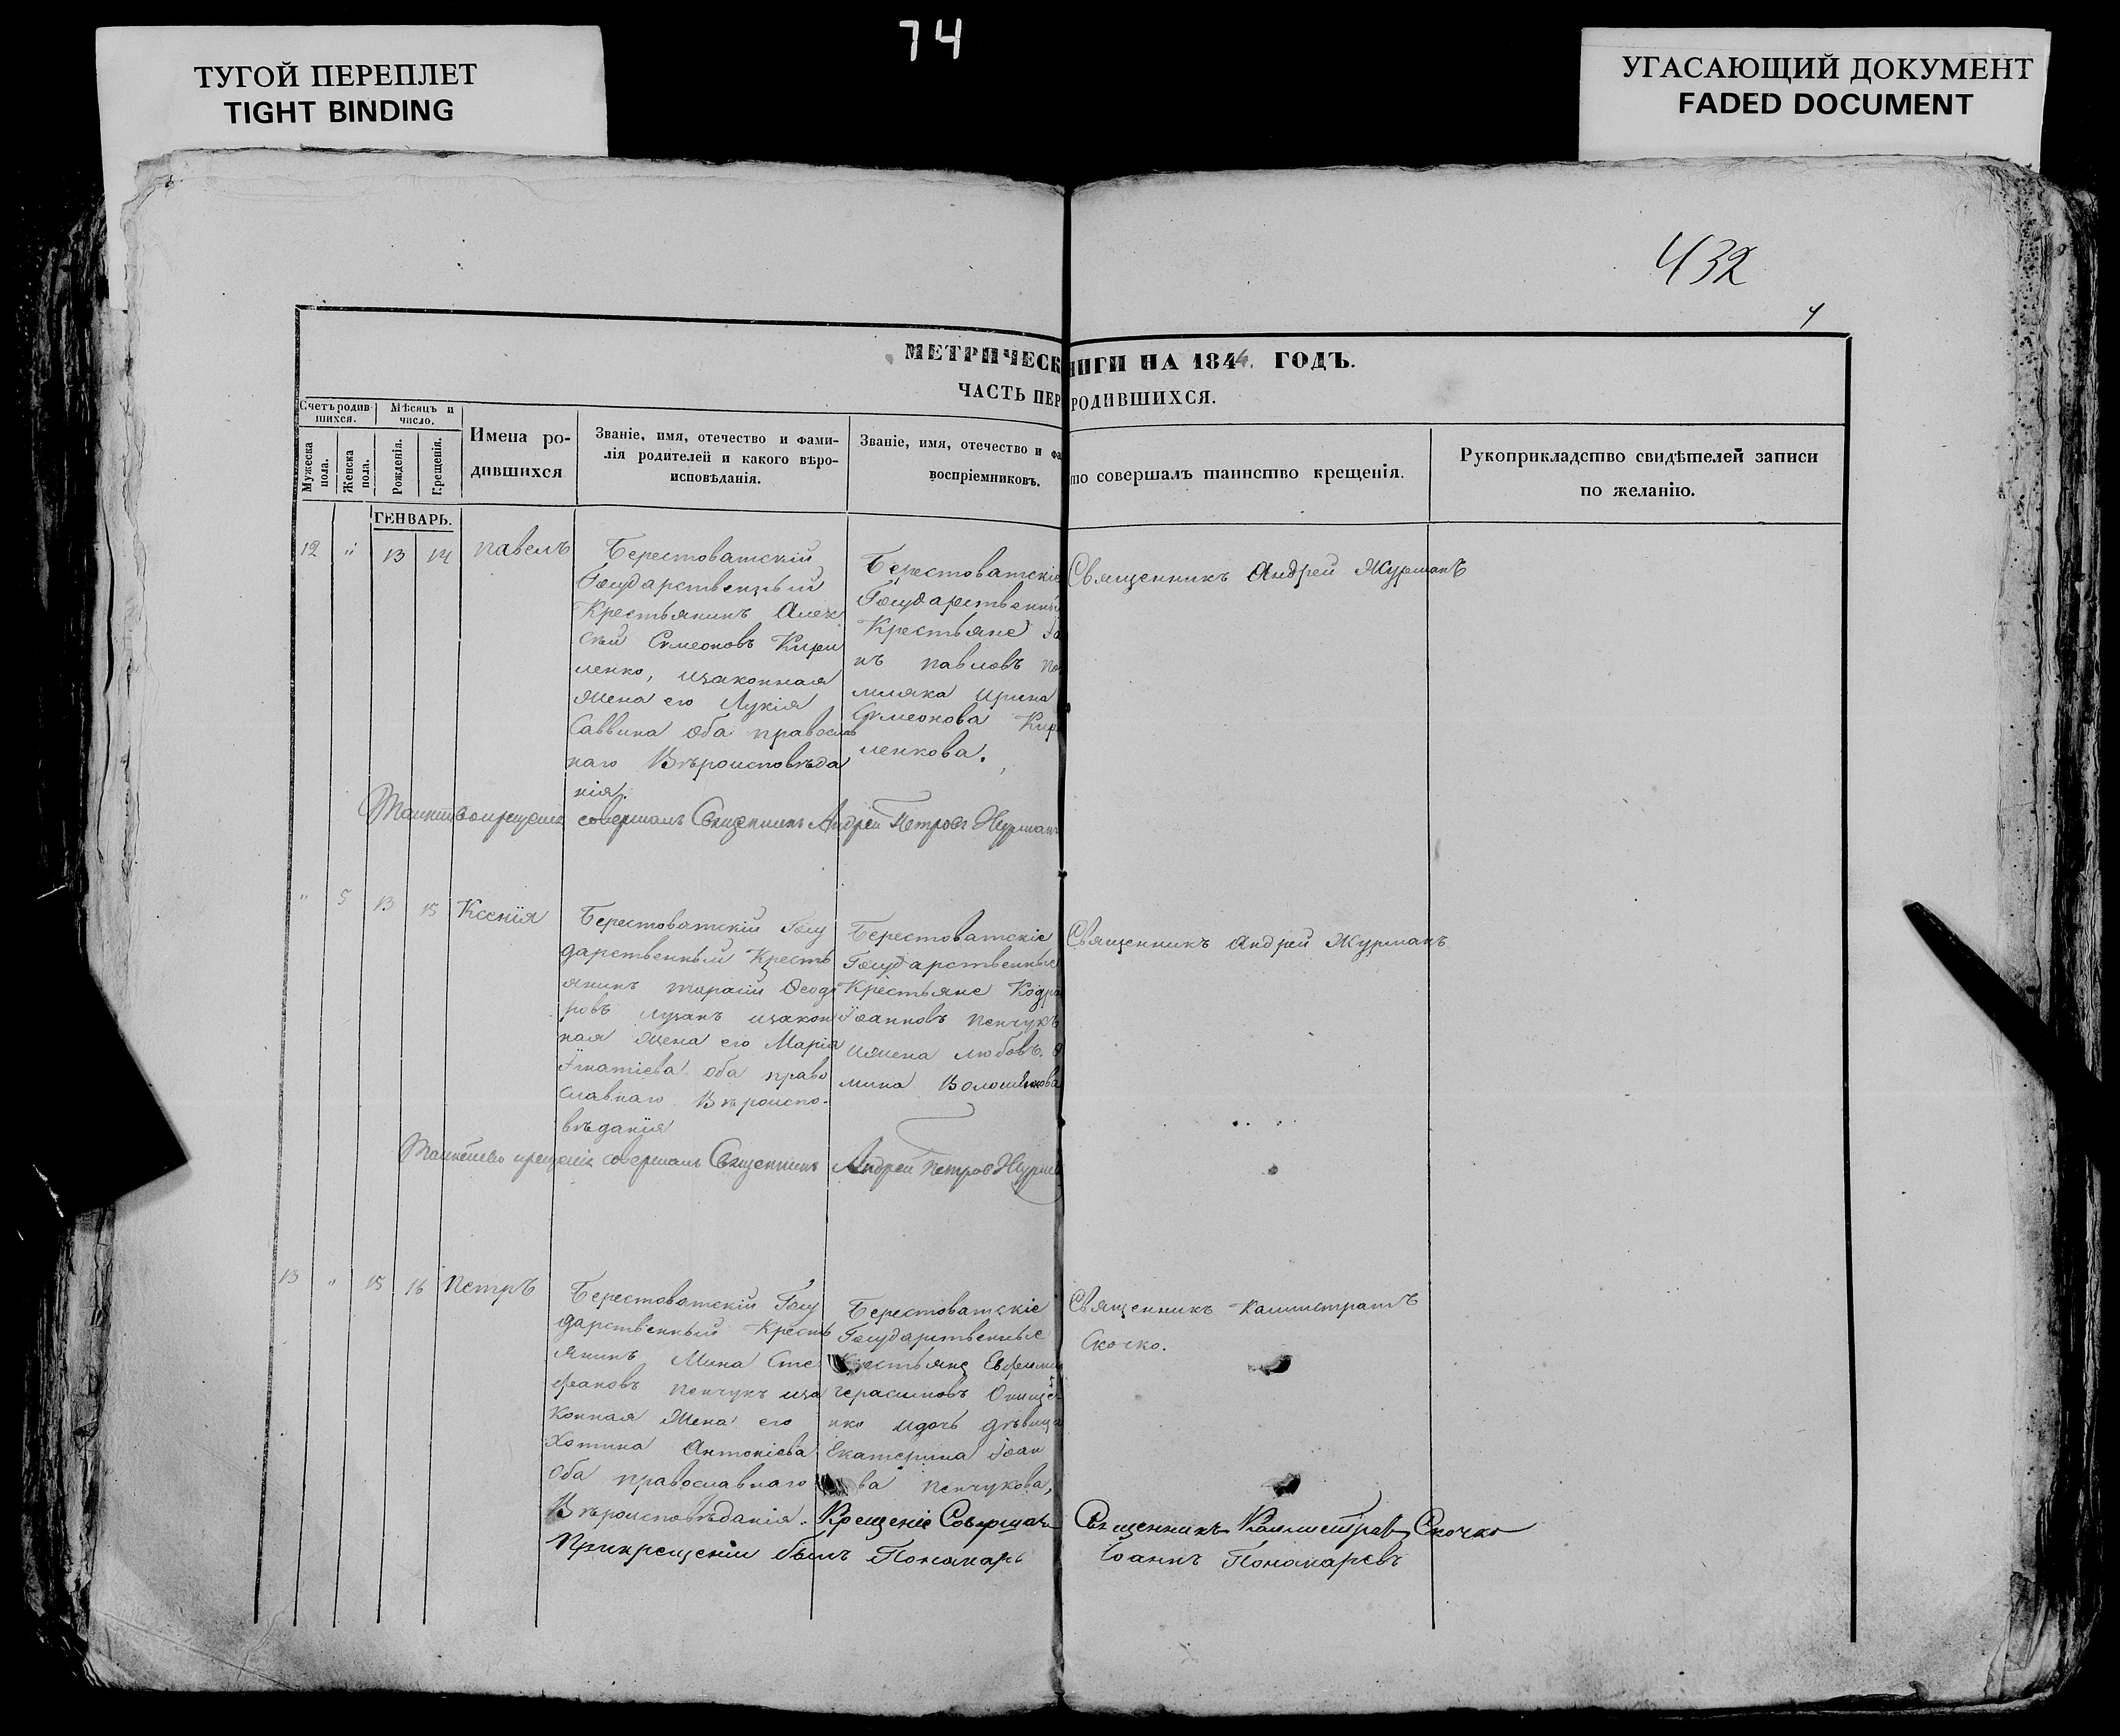 74
ТУГОЙ ПЕРЕПЛЕТ
TIGHT BINDING
УГАСАЮЩИЙ ДОКУМЕНТ
FADED DOCUMENT
432
МЕТРИЧЕСК НИГИ НА 1844. ГОДЪ.
ЧАСТЬ ПЕР РОДИВШИХСЯ.
Счетъ родив-
шихся.
Мужеска
пола.
Женска
пола.
Мѣсяцъ и
число.
Рожденія.
Крещенія.
Имена ро-
дившихся
Званіе, имя, отечество и фами-
лія родителей и какого вѣро-
исповѣданія.
Званіе, имя, отечество и фа
воспріемниковъ.
то совершалъ таинство крещенія.
Рукоприкладство свидѣтелей записи
по желанію.
ГЕНВАРЬ.
12 " 13 14 павелъ
Берестоватскій
Государственный
Крестьянинъ Алек
сѣй Сѵмеоновъ Кири
ленко, изаконная
жена его Лукія
Саввина оба православ
наго Вѣроисповѣда
нія.
Берестоватскіе
Государственны
Крестьяне Іо
нъ павловъ по
мляка ирина
Сѵмеонова Кири
ленкова.
Священникъ Андрей Журманъ
Таинство крещенія совершалъ Священникъ Андрей Петровъ Журманъ
" 5 13 15 Ксенія
Берестоватскій Госу
дарственный Кресть
янинъ тарасій Ѳеодо
ровъ лузанъ изакон
ная жена его Марія
Игнатіева оба право
славнаго Вѣроиспо-
вѣданія
Берестоватскіе
Государственные
Крестьяне Кодра
Іоанновъ пенчукъ
ижена любовъ.
мина Волошинова
Священникъ Андрей Журманъ
Таинство крещенія совершалъ Священникъ Андрей Петровъ Журма
13 " 15 16 петръ
Берестоватскій Госу
дарственный Кресть
янинъ Мина Сте
фановъ пенчукъ иза
конная жена его
Хотина Антоніева
Оба православнаго
Вѣроисповѣданія.
Берестоватскіе
Государственные
Крестьяне Евфимій
герасимовъ Онище
нко идочь дѣвица
Екатерина Іоан
ва пенчукова,
Священникъ Каллистратъ
Скочко.
Крещеніе Совершалъ Священникъ Каллистратъ Скочко
Прикрещеніи былъ Пономарь Іоаннъ Пономаревъ